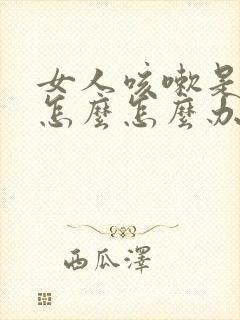 女人咳嗽是
怎麼怎麼办
西瓜澤